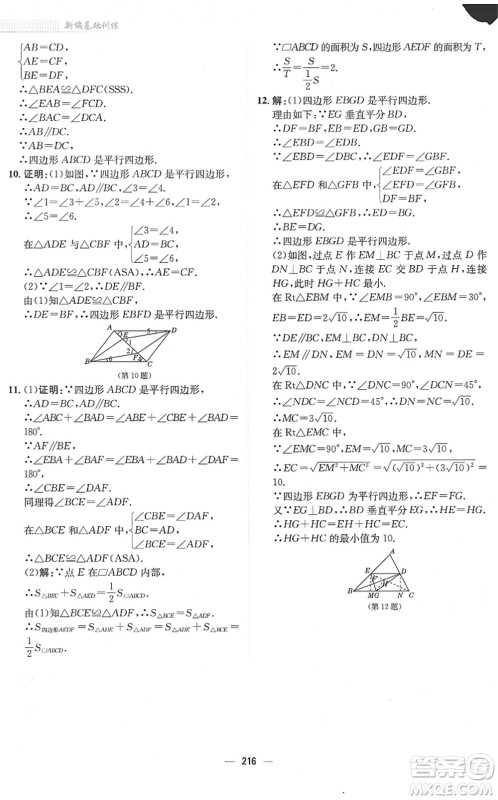 新编基础训练
AB=CD,
AE=CF,
BE=DF.
∴△BEA≌△DFC(SSS).
∴∠EAB=∠FCD.
∴∠BAC=∠DCA.
∴AB∥CD.
∴四边形 ABCD 是平行四边形.
10. 证明:(1)如图,∵四边形 ABCD 是平行四边形,
∴AD=BC,AD∥BC,∠3=∠4.
∵∠1=∠3+∠5,∠2=∠4+∠6,∠1=∠2,
∴∠5=∠6.
在△ADE 与△CBF 中,
∠3=∠4,
AD=BC,
∠5=∠6,
∴△ADE≌△CBF(ASA).∴AE=CF.
(2)∵∠1=∠2,∴DE∥BF.
由(1)知△ADE≌△CBF,
∴DE=BF.∴四边形 EBFD 是平行四边形.
(第 10 题)
11. (1)证明:∵四边形 ABCD 是平行四边形,
∴AD=BC,AD∥BC.∴∠ABC+∠BAD=
180°.
∵AF∥BE,∴∠EBA+∠BAF=180°.
∴∠CBE=∠DAF.
同理得∠BCE=∠ADF.
在△BCE 和△ADF 中,
∠CBE=∠DAF,
BC=AD,
∠BCE=∠ADF,
∴△BCE≌△ADF(ASA).
(2)解:∵点 E 在□ABCD 内部,
∴S△BEC+S△AED=1/2 S□ABCD.
由(1)知△BCE≌△ADF,∴S△BCE=S△ADF.
∴S四边形AEDF=S△ADF+S△AED=S△BEC+S△AED=
1/2 S□ABCD,
∵□ABCD 的面积为 S,四边形 AEDF 的面积为 T,
∴S/T=S/(1/2 S)=2.
12. 解:(1)四边形 EBGD 是平行四边形.
理由如下:∵EG 垂直平分 BD,
∴DF=BF,EB=ED.∴∠EBF=∠EDF.
∵∠EBF=∠GBF,∴∠EDF=∠GBF.
在△EFD 和△GFB 中,
∠EDF=∠GBF,
DF=BF,
∠EFD=∠GFB,
∴△EFD≌△GFB.∴ED=BG.
∴BE=DG.
∴四边形 EBGD 是平行四边形.
(2)如图,过点 E 作 EM⊥BC 于点 M,过点 D 作
DN⊥BC 于点 N,连接 EC 交 BD 于点 H,连接
HG,此时 HG+HC 最小.
在 Rt△EBM 中,∵∠EMB=90°,∠EBM=30°,
∴EM=1/2 BE=√10.
∵DE∥BC,EM⊥BC,DN⊥BC,
∴EM∥DN,EM=DN=√10.
∴MN=DE=BE=2√10.
在 Rt△DNC 中,∵∠DNC=90°,∠DCN=45°,
∴∠NDC=∠NCD=45°.∴DN=NC=√10.
∴MC=3√10.
在 Rt△EMC 中,
∵∠EMC=90°,EM=√10,MC=3√10,
∴EC=√EM²+MC²=√(√10)²+(3√10)²=
10.
∵四边形 EBGD 为平行四边形,∴EF=FG.
又∵EG⊥BD,∴HG=HE.
∴HG+HC=HE+HC=EC.
∴HG+HC 的最小值为 10.
(第 12 题)
216